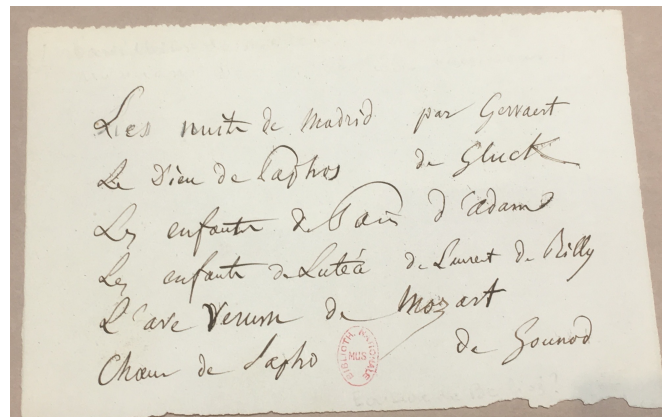 Les nuits de Madrid par Gevaert
Le Dieu de Paphos de Gluck
Les enfants de Paris d'adam
Les enfants de Lutéa de Laurent de Rilly
L'ave verum de Mozart
Chœur de Sapho de Gounod
BIBLIOTH. NATIONALE
MUS